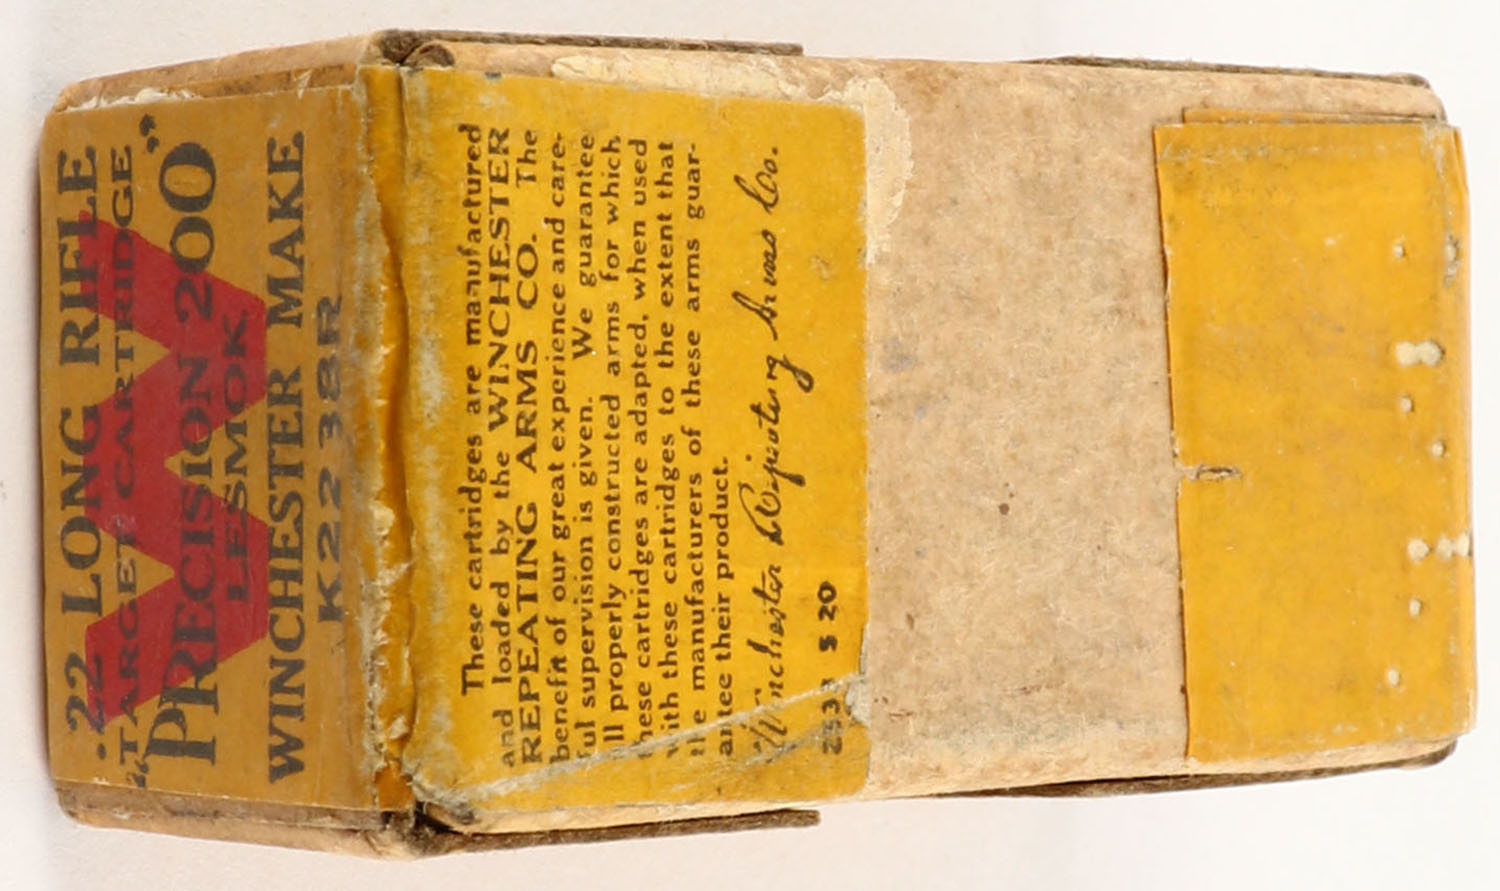 .22 LONG RIFLE
"TARGET CARTRIDGE"
"PRECISION 200"
LESMOK
WINCHESTER MAKE
K2238R
These cartridges are manufactured
and loaded by the WINCHESTER
REPEATING ARMS CO. The
benefit of our great experience and care-
ful supervision is given. We guarantee
ll properly constructed arms for which
hese cartridges are adapted, when used
with these cartridges to the extent that
the manufacturers of these arms guar-
antee their product.
Winchester Repeating Arms Co.
S 20